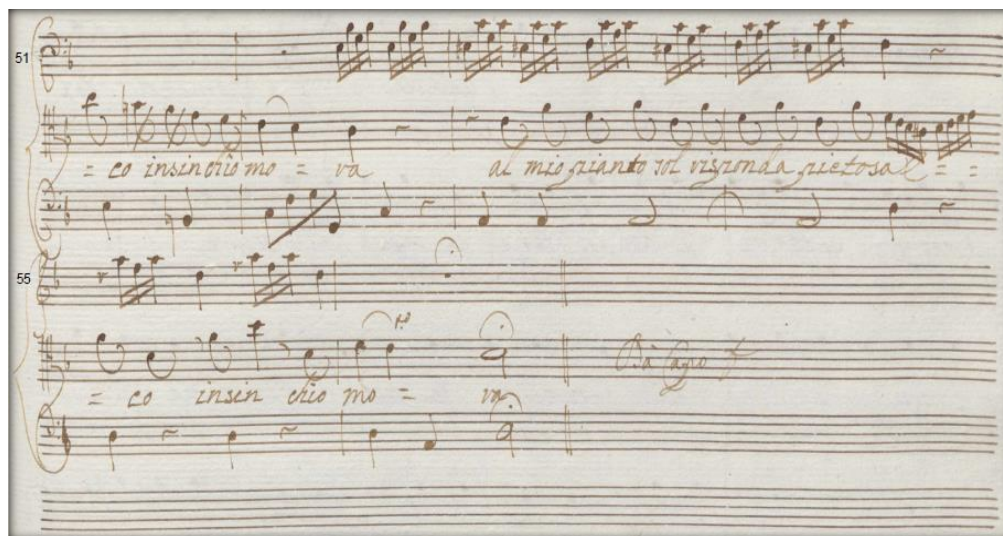 51
= co insin chio mo = va al mio pianto sol risponda pietosa e = =
55
Da Capo
= co insin chio mo = va